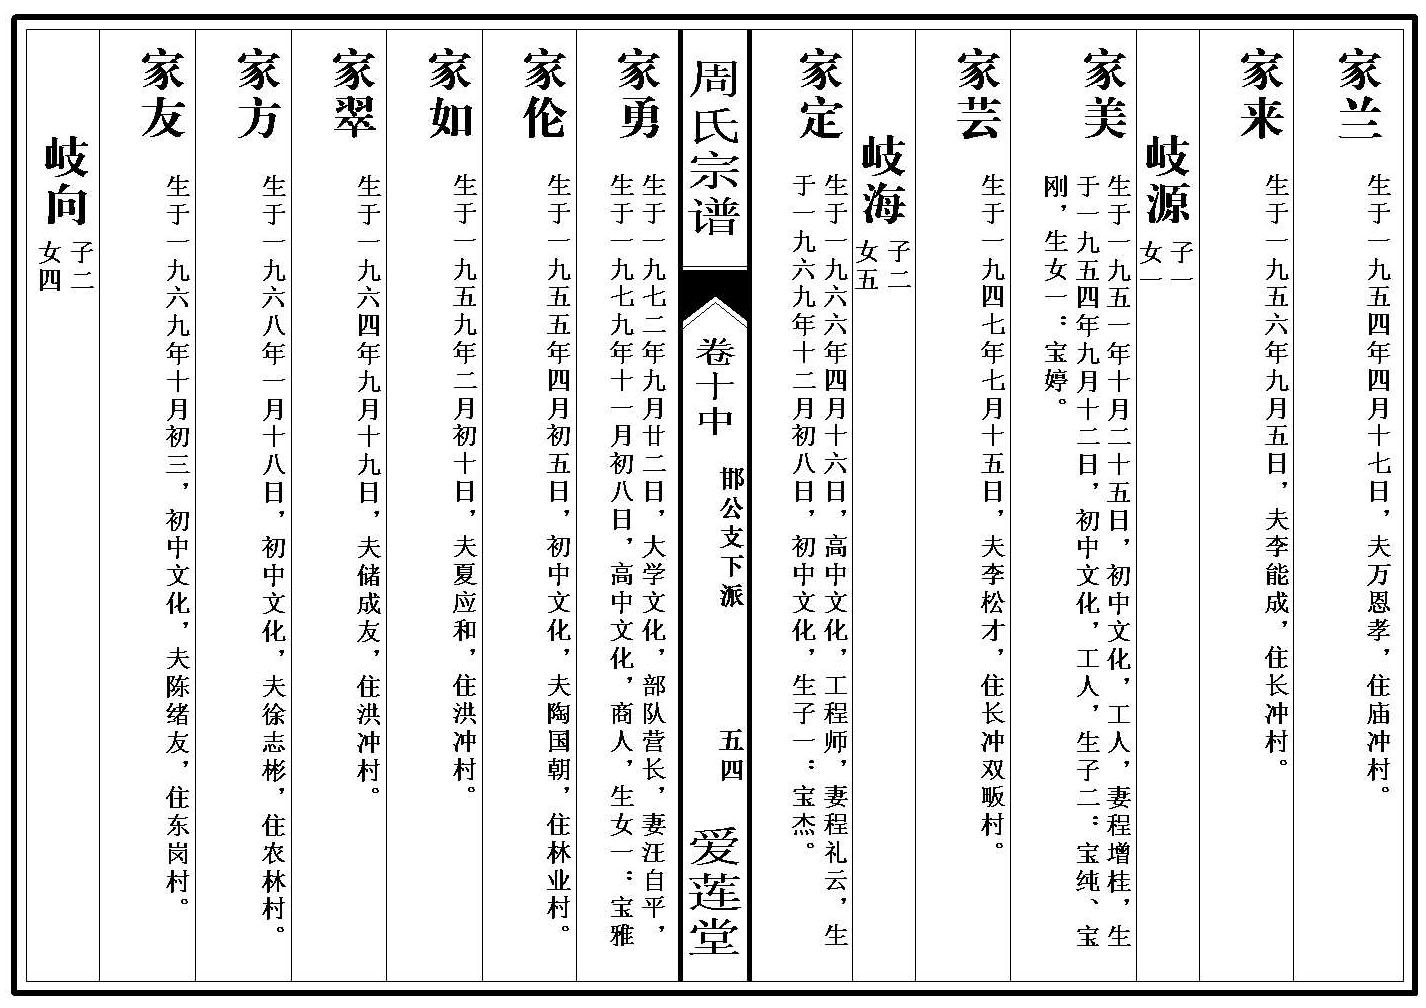 家兰
生于一九五四年四月十七日，夫万恩孝，住庙冲村。
家来
生于一九五六年九月五日，夫李能成，住长冲村。
岐源
子一
女一
家美
生于一九五一年十月二十五日，初中文化，工人，妻程增桂，生
于一九五四年九月十二日，初中文化，工人，生子二：宝纯、宝
刚，生女一：宝婷。
家芸
生于一九四七年七月十五日，夫李松才，住长冲双畈村。
岐海
子二
女五
家定
生于一九六六年四月十六日，高中文化，工程师，妻程礼云，生
于一九六九年十二月初八日，初中文化，生子一：宝杰。
周氏宗谱
卷十中
邯公支下派
五四
爱莲堂
家勇
生于一九七二年九月廿二日，大学文化，部队营长，妻汪自平，
生于一九七九年十一月初八日，高中文化，商人，生女一：宝雅
家伦
生于一九五五年四月初五日，初中文化，夫陶国朝，住林业村。
家如
生于一九五九年二月初十日，夫夏应和，住洪冲村。
家翠
生于一九六四年九月十九日，夫储成友，住洪冲村。
家方
生于一九六八年一月十八日，初中文化，夫徐志彬，住农林村。
家友
生于一九六九年十月初三，初中文化，夫陈绪友，住东岗村。
岐向
子二
女四